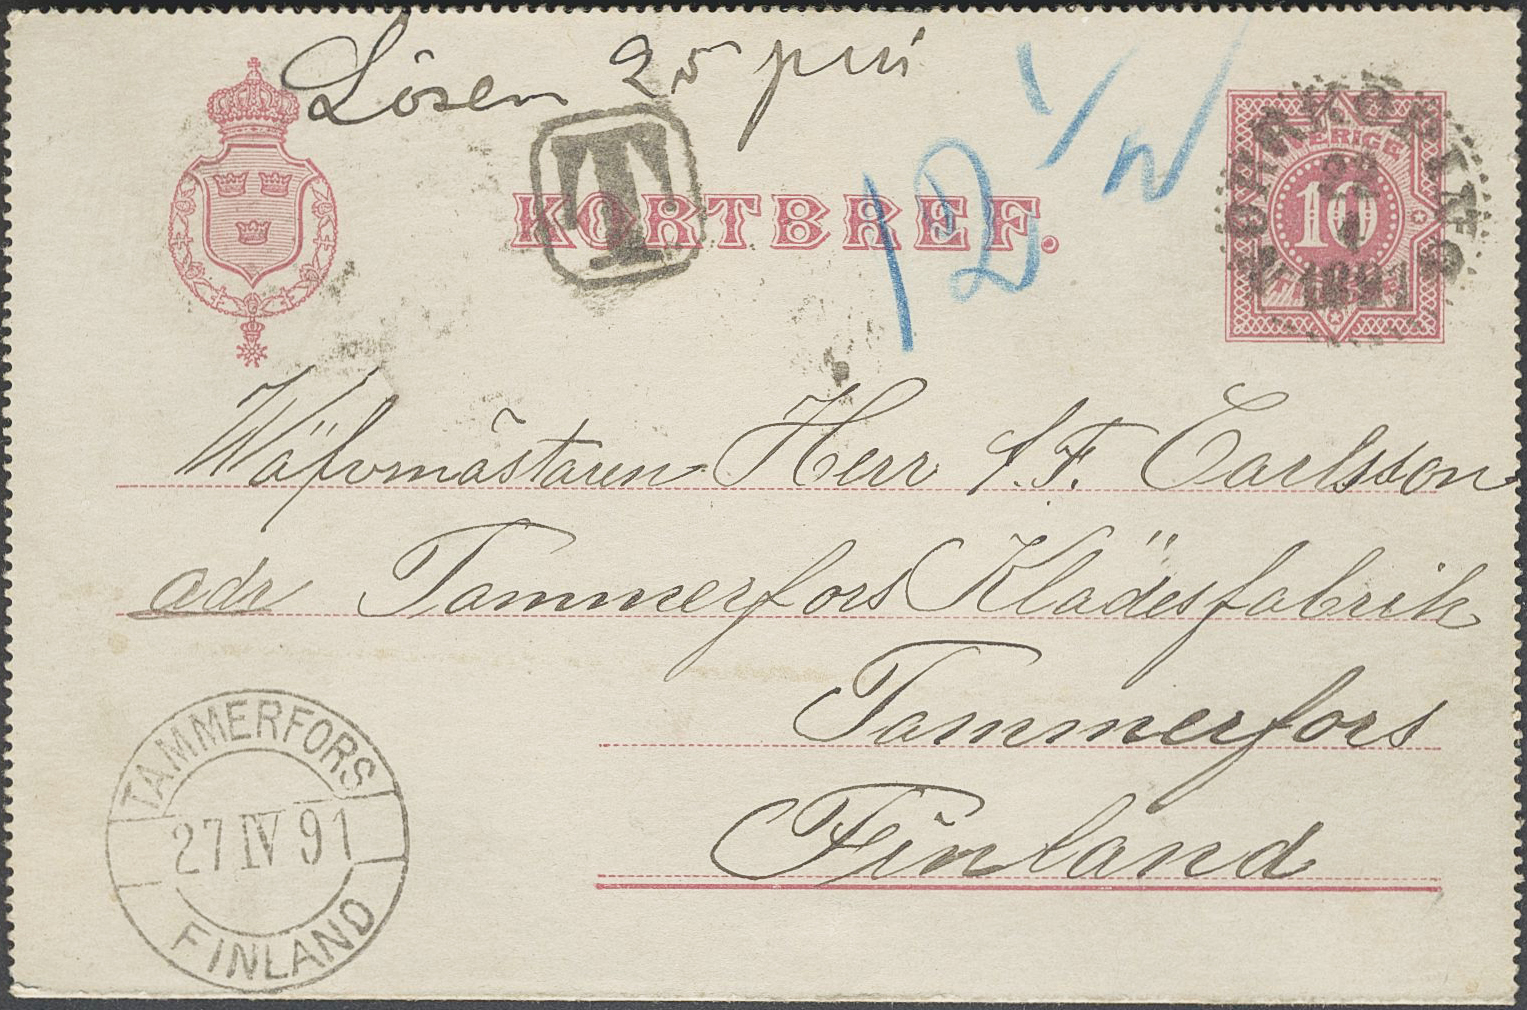 Lösen 25 pni
T
KORTBREF.
12 1/2
SVERIGE
10
NORRKÖPING
22
4
1891
Wäfvmästaren Herr S. F. Carlsson
adr Tammerfors Klädesfabrik
Tammerfors
Finland
TAMMERFORS
27 IV 91
FINLAND